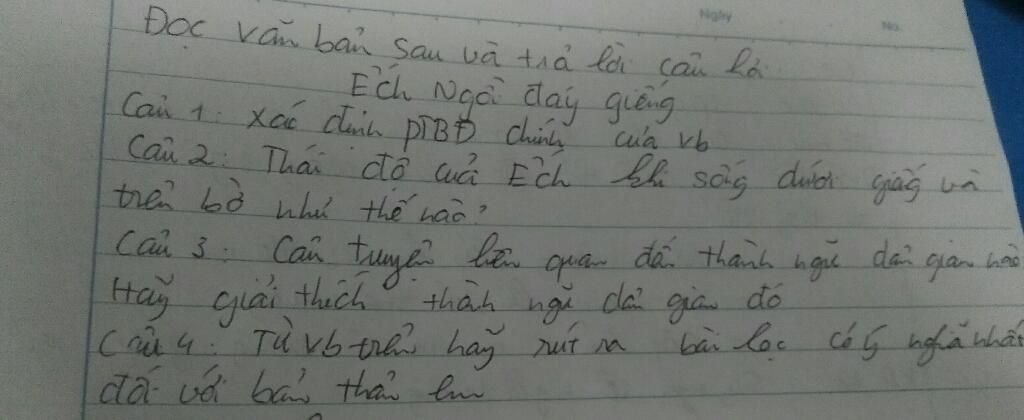 Ngày No.
Đọc văn bản sau và trả lời câu hỏi
Ếch Ngồi đáy giếng
Câu 1: Xác định PTBĐ chính của vb
Câu 2: Thái độ của Ếch khi sống dưới giếng và
trên bờ như thế nào?
Câu 3: Câu truyện liên quan đến thành ngữ dân gian nào
Hãy giải thích thành ngữ dân gian đó
Câu 4: Từ vb trên hãy rút ra bài học có ý nghĩa nhất
đối với bản thân em